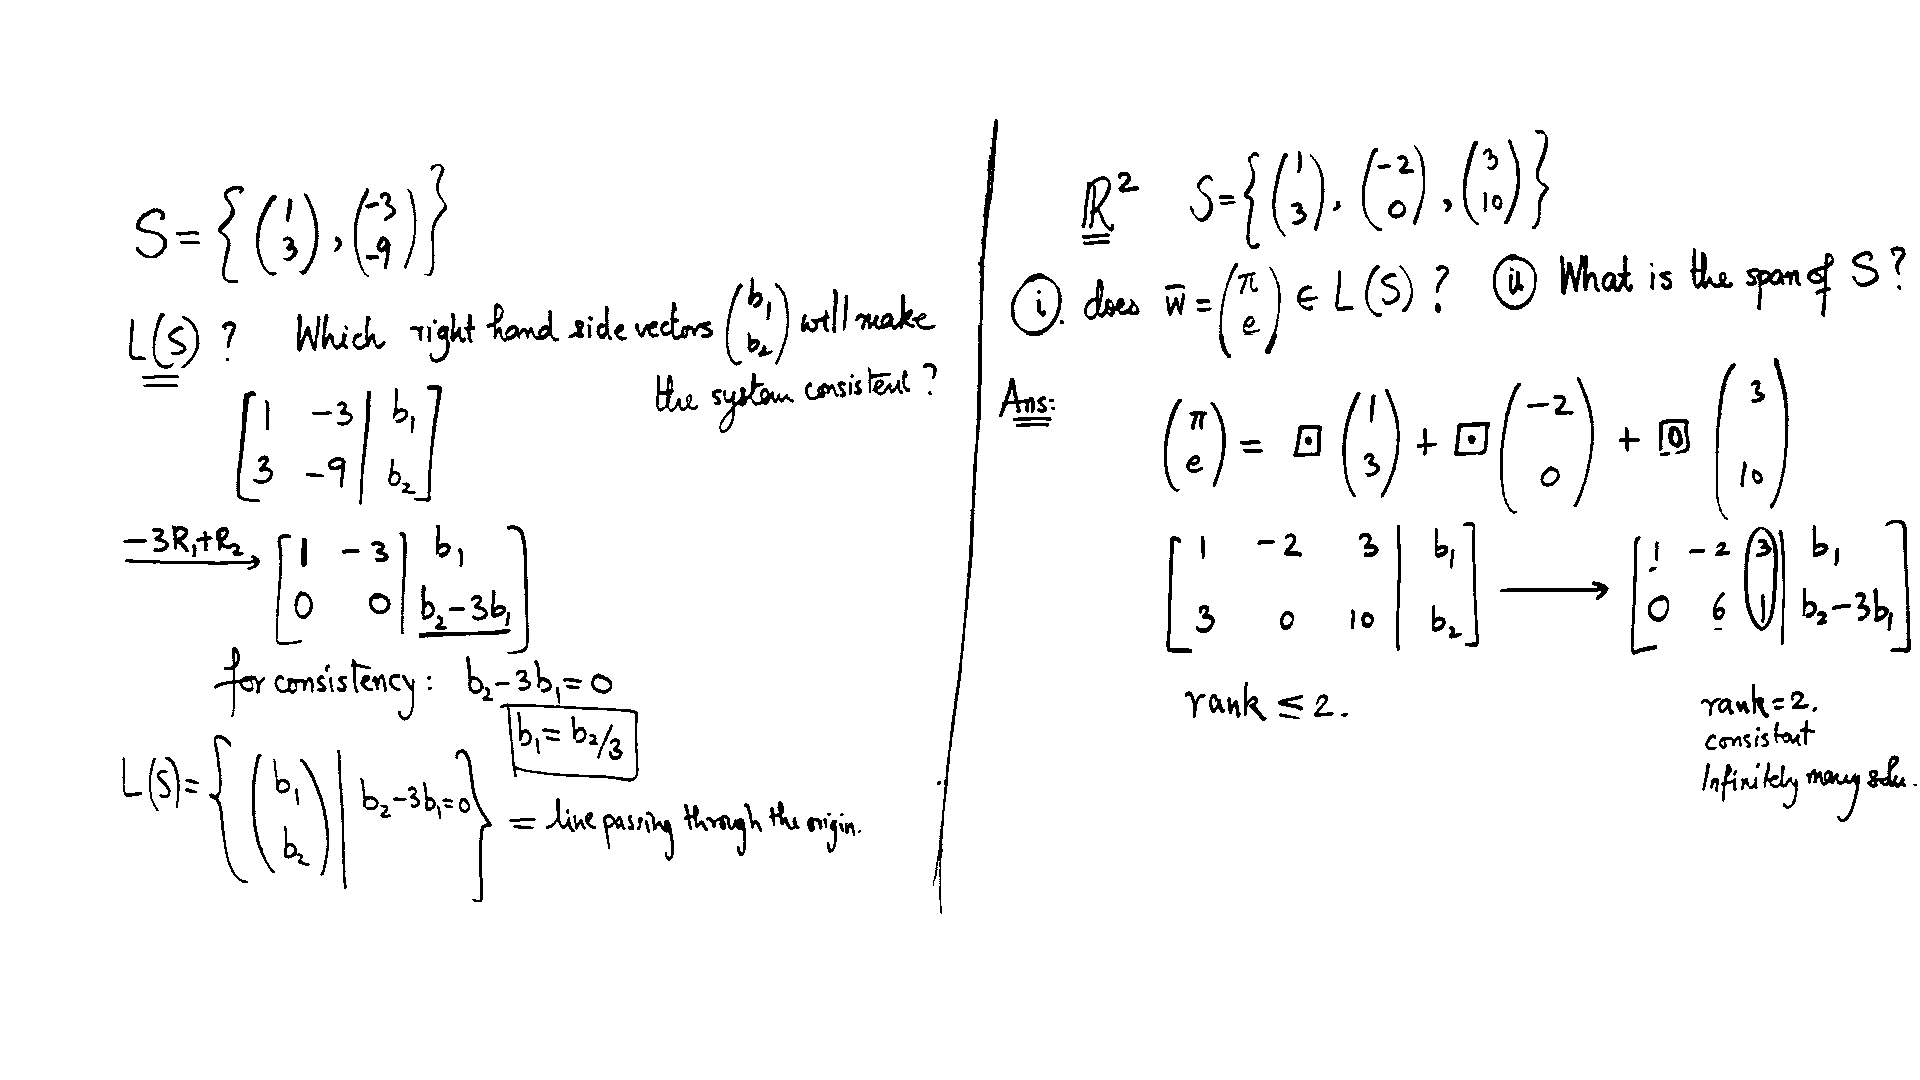 S = { (1 3), (-3 -9) }
L(S) ? Which right hand side vectors (b₁ b₂) will make
the system consistent ?
[ 1 -3 | b₁
3 -9 | b₂ ]
-3R₁+R₂ → [ 1 -3 | b₁
0 0 | b₂-3b₁ ]
for consistency : b₂-3b₁ = 0
b₁ = b₂/3
L(S) = { (b₁ b₂) | b₂-3b₁=0 } = line passing through the origin.
ℝ² S = { (1 3), (-2 0), (3 10) }
(i). does w̄ = (π e) ∈ L(S) ? (ii) What is the span of S ?
Ans: (π e) = ⊡ (1 3) + ⊡ (-2 0) + 0 (3 10)
[ 1 -2 3 | b₁
3 0 10 | b₂ ] → [ 1 -2 3 | b₁
0 6 1 | b₂-3b₁ ]
rank ≤ 2.
rank = 2.
consistent
Infinitely many soln.